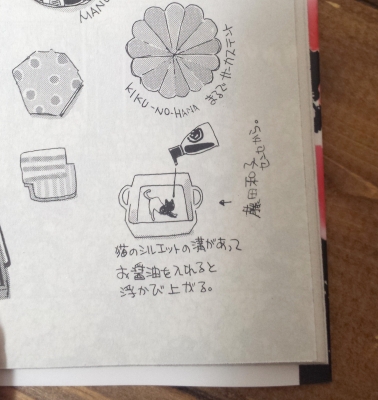 MAN
KIKU-NO-HANA
まるでサーカステント
藤田和子
センセから。
猫のシルエットの溝があって
お醤油を入れると
浮かび上がる。